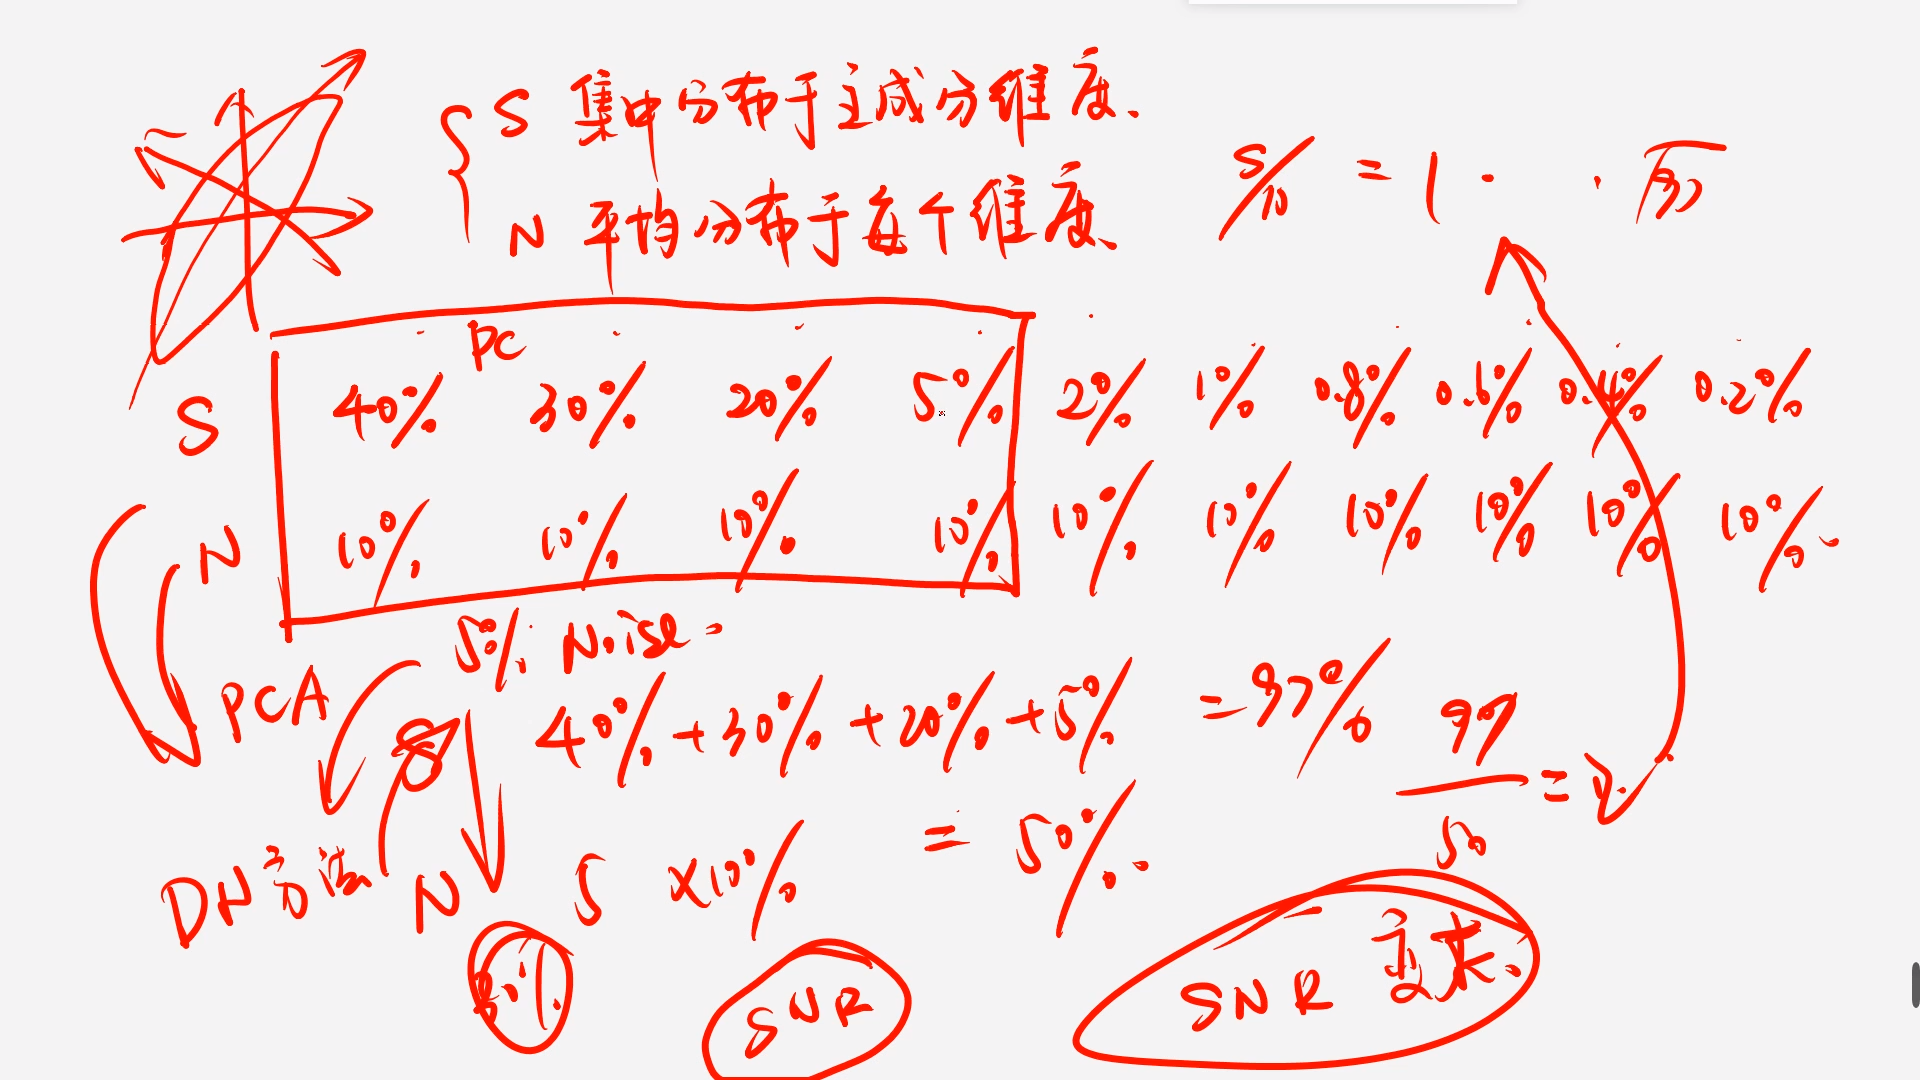 S 集中分布于主成分维度、
N 平均分布于每个维度、
S/n = 1
PC
S 40% 30% 20% 5% 2% 1% 0.8% 0.6% 0.4% 0.2%
N 10% 10% 10% 10% 10% 10% 10% 10% 10% 10%
5% Noise
PCA S 40%+30%+20%+5% =97% 97
= 2
50
DN方法 N 5 ×10% = 50%
SNR
SNR 变大、